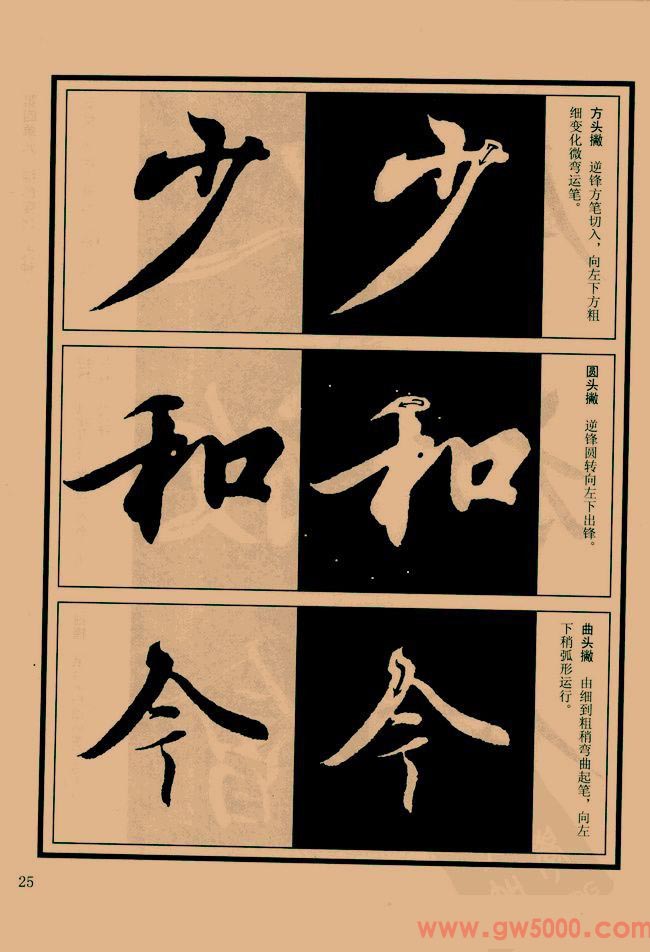 少
少
方头撇 逆锋方笔切入，向左下方粗
细变化微弯运笔。
和
和
圆头撇 逆锋圆转向左下出锋。
今
今
曲头撇 由细到粗稍弯曲起笔，向左
下稍弧形运行。
25
www.gw5000.com